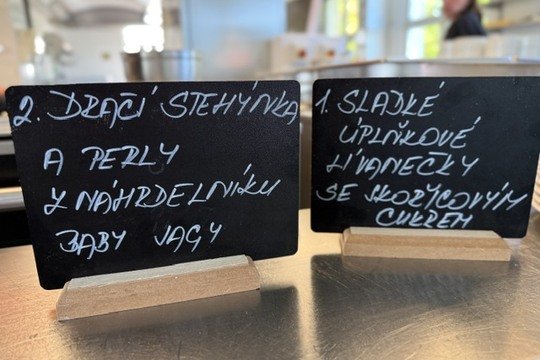 2. DRAČÍ STEHÝNKA
A PERLY
Z NÁHRDELNÍKU
BABY JAGY
1. SLADKÉ
ÚPLŇKOVÉ
LÍVANEČKY
SE SKOŘICOVÝM
CUKREM